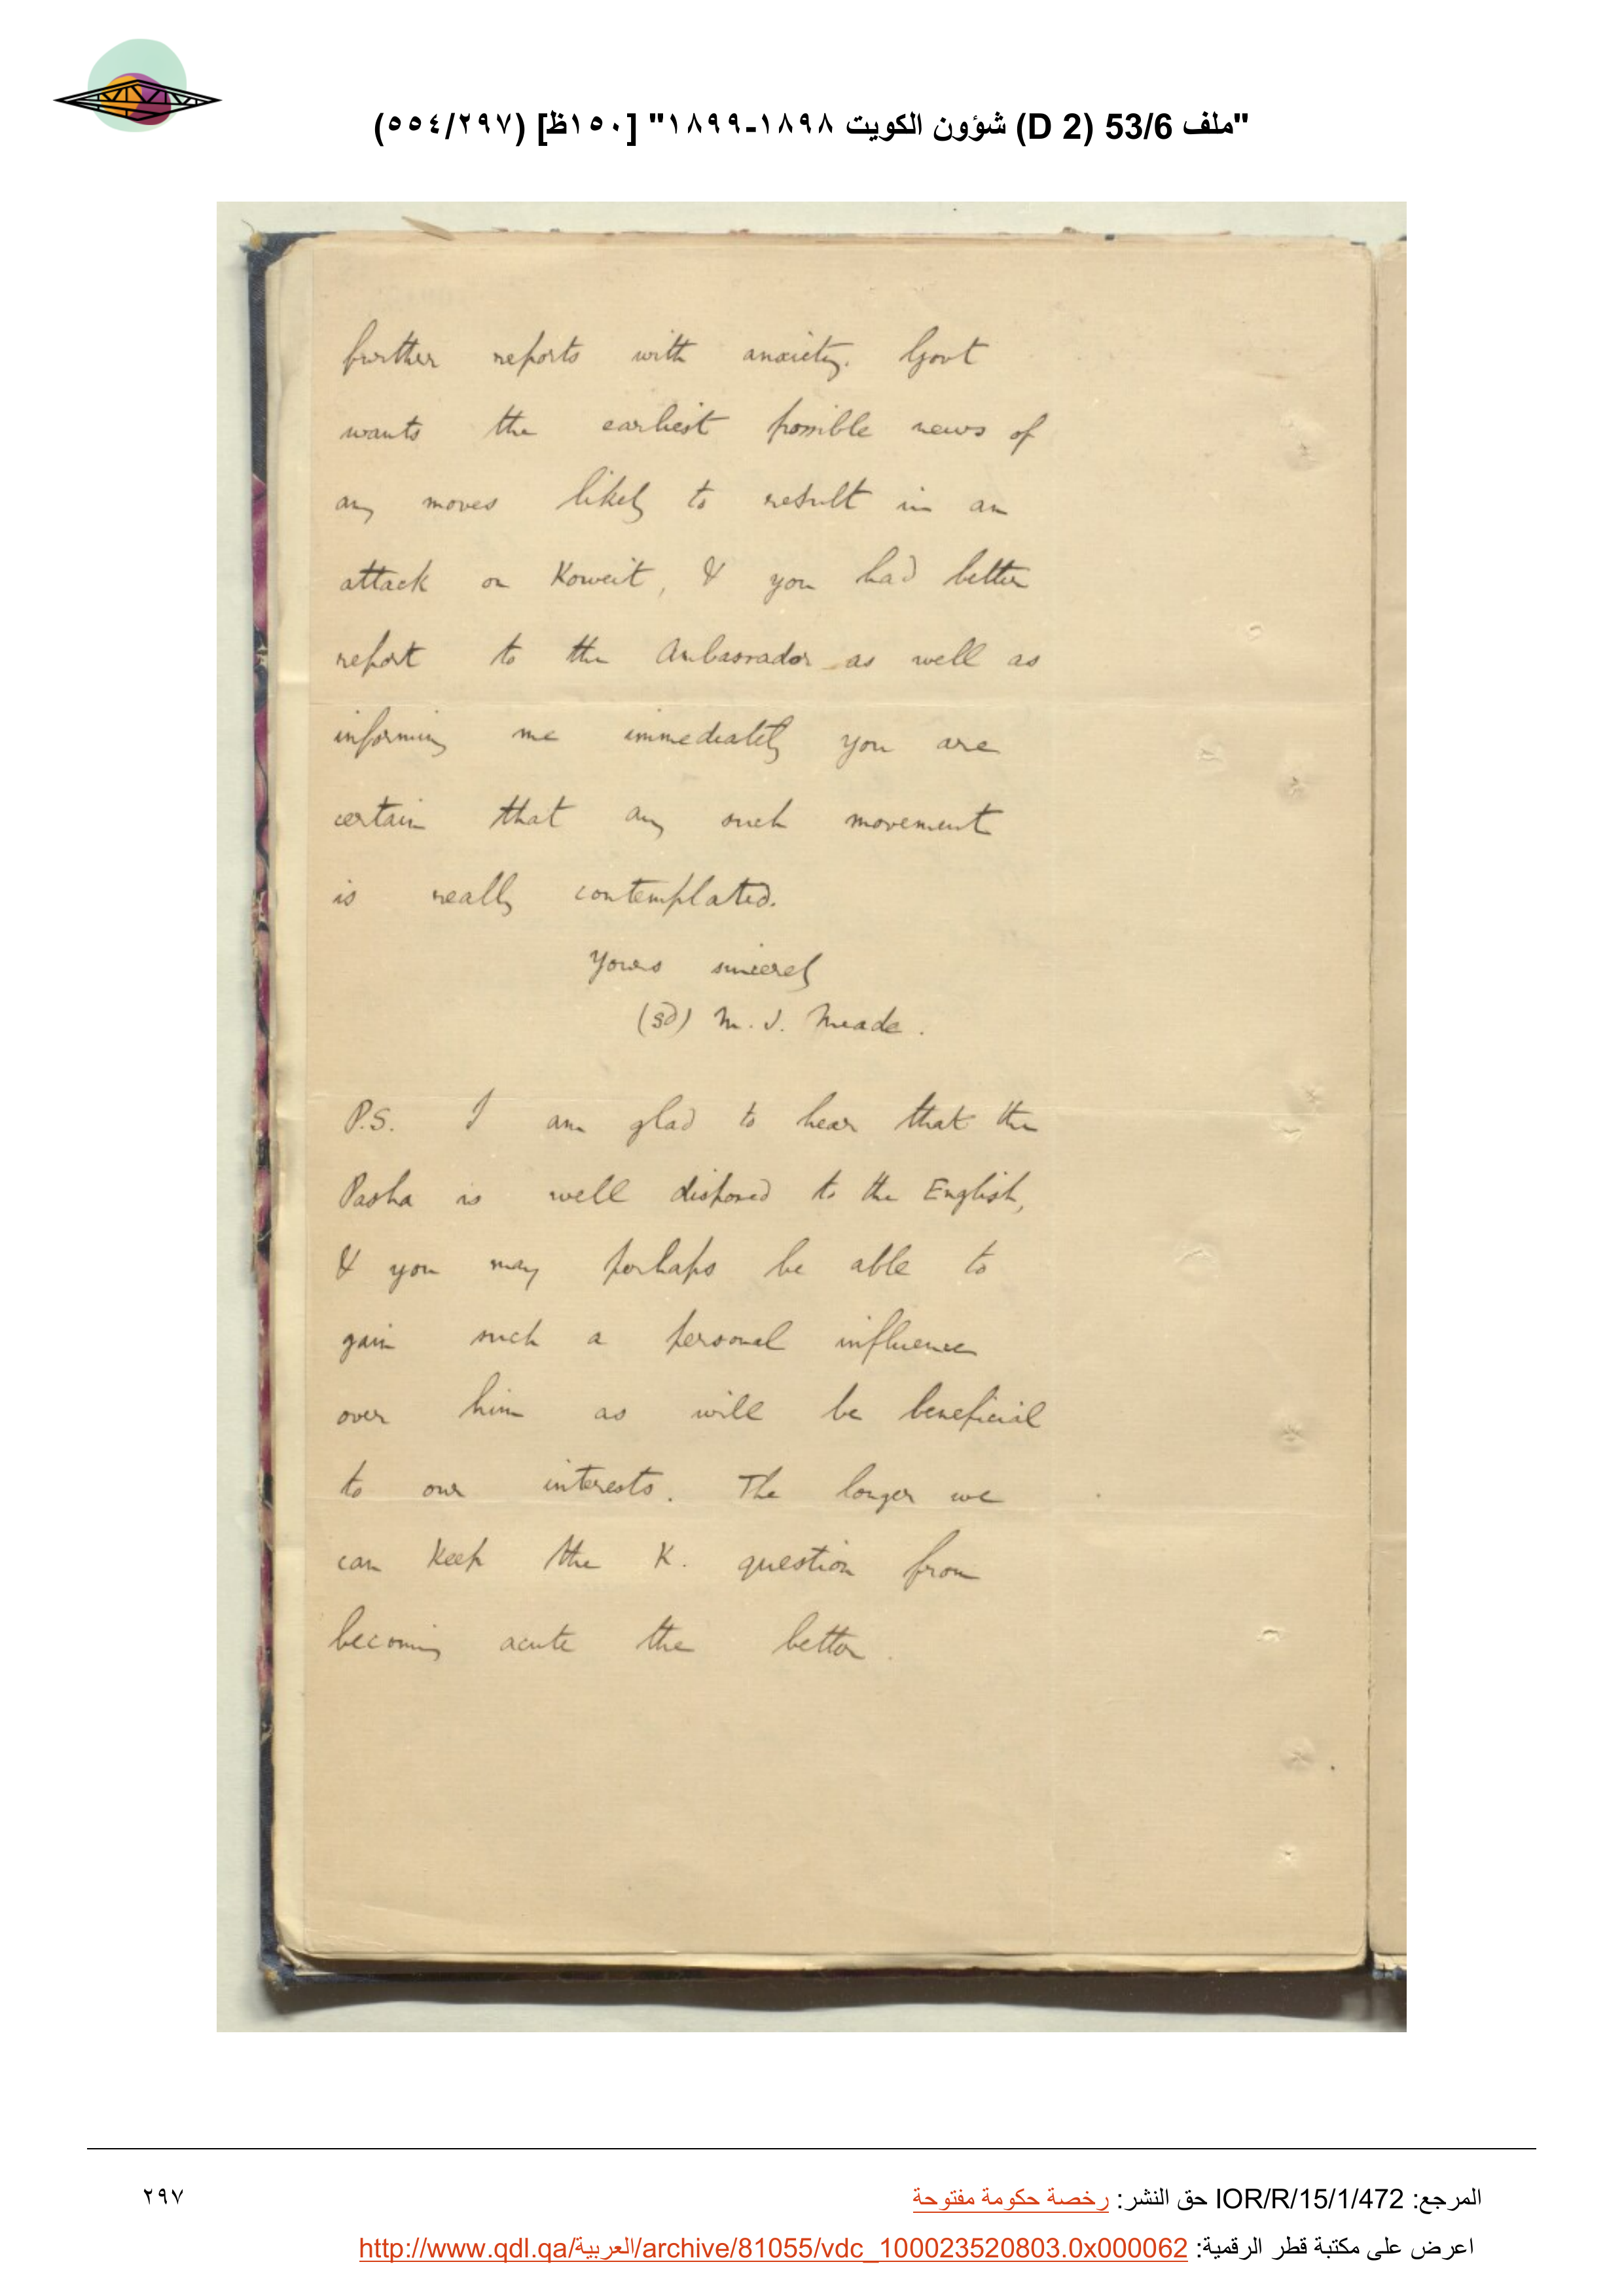 "ملف 53/6 (D 2) شؤون الكويت ١٨٩٨-١٨٩٩" [١٥٠ظ] (٥٥٤/٢٩٧)
further reports with anxiety. Govt
wants the earliest possible news of
any moves likely to result in an
attack on Koweit, & you had better
report to the Ambassador as well as
informing me immediately you are
certain that any such movement
is really contemplated.
Yours sincerely
(sd) M. J. Meade.
P.S. I am glad to hear that the
Pasha is well disposed to the English,
& you may perhaps be able to
gain such a personal influence
over him as will be beneficial
to our interests. The longer we
can keep the K. question from
becoming acute the better.
المرجع: IOR/R/15/1/472 حق النشر: رخصة حكومة مفتوحة
٢٩٧
اعرض على مكتبة قطر الرقمية: http://www.qdl.qa/العربية/archive/81055/vdc_100023520803.0x000062